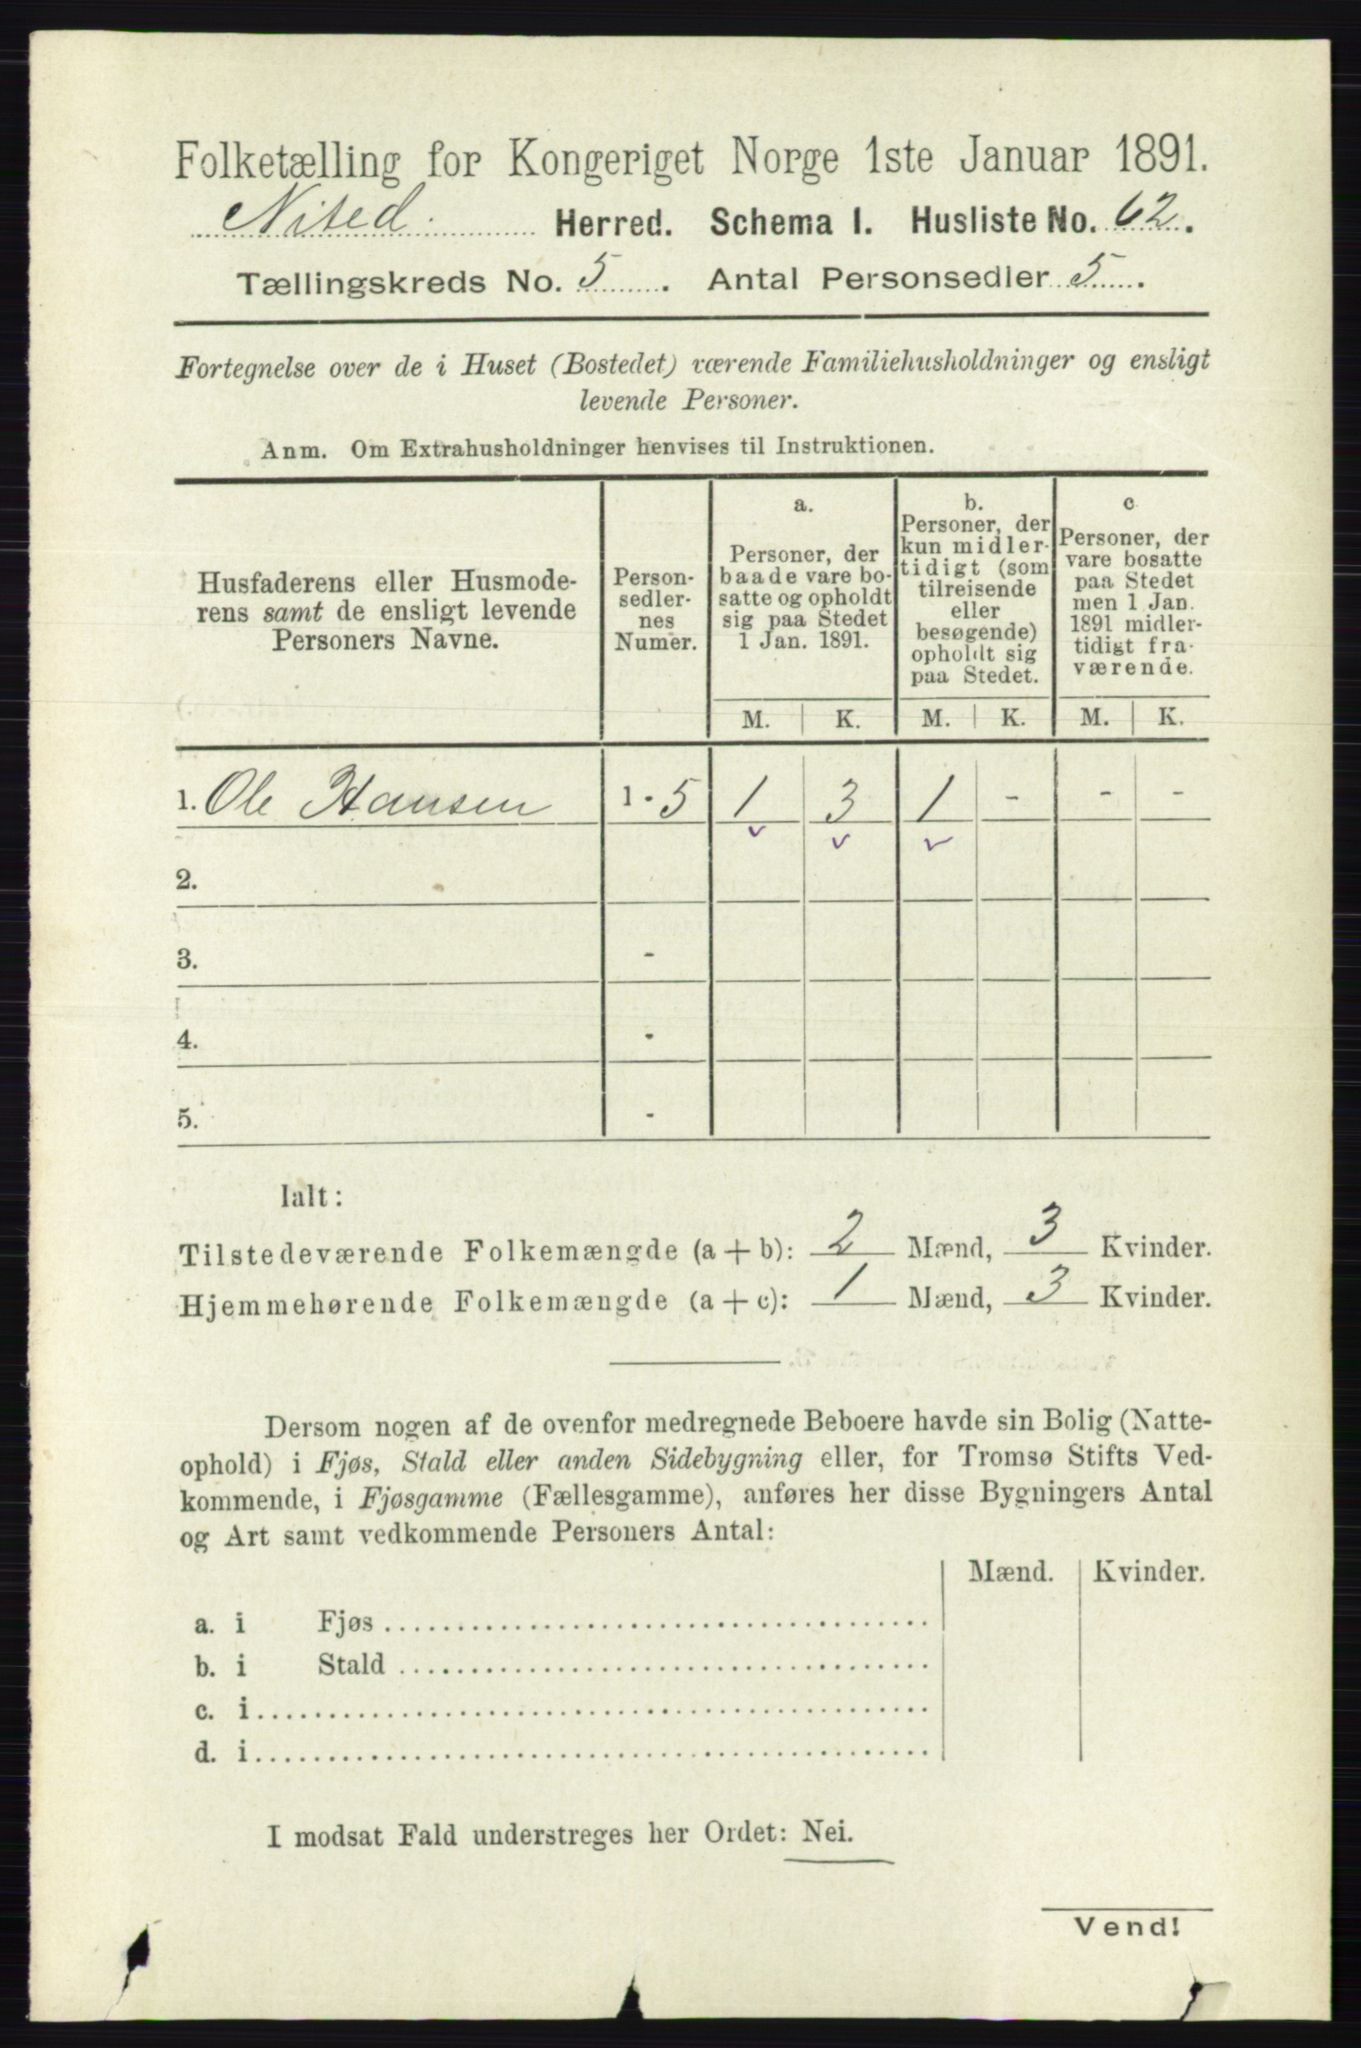 Folketælling for Kongeriget Norge 1ste Januar 1891.
Nited. Herred. Schema I. Husliste No. 62.
Tællingskreds No. 5. Antal Personsedler 5.
Fortegnelse over de i Huset (Bostedet) værende Familiehusholdninger og ensligt
levende Personer.
Anm. Om Extrahusholdninger henvises til Instruktionen.
Husfaderens eller Husmode-
rens samt de ensligt levende
Personers Navne.
Person-
sedler-
nes
Numer.
a.
Personer, der
baade vare bo-
satte og opholdt
sig paa Stedet
1 Jan. 1891.
b.
Personer, der
kun midler-
tidigt (som
tilreisende
eller
besøgende)
opholdt sig
paa Stedet.
c
Personer, der
vare bosatte
paa Stedet
men 1 Jan.
1891 midler-
tidigt fra-
værende.
M. K. M. K. M. K.
1. Ole Hansen 1 - 5 1 3 1 - - -
2.
3. -
4. -
5. -
Ialt:
Tilstedeværende Folkemængde (a + b): 2 Mænd, 3 Kvinder.
Hjemmehørende Folkemængde (a + c): 1 Mænd, 3 Kvinder.
Dersom nogen af de ovenfor medregnede Beboere havde sin Bolig (Natte-
ophold) i Fjøs, Stald eller anden Sidebygning eller, for Tromsø Stifts Ved-
kommende, i Fjøsgamme (Fællesgamme), anføres her disse Bygningers Antal
og Art samt vedkommende Personers Antal:
Mænd. Kvinder.
a. i Fjøs
b. i Stald
c. i
d. i
I modsat Fald understreges her Ordet: Nei.
Vend!